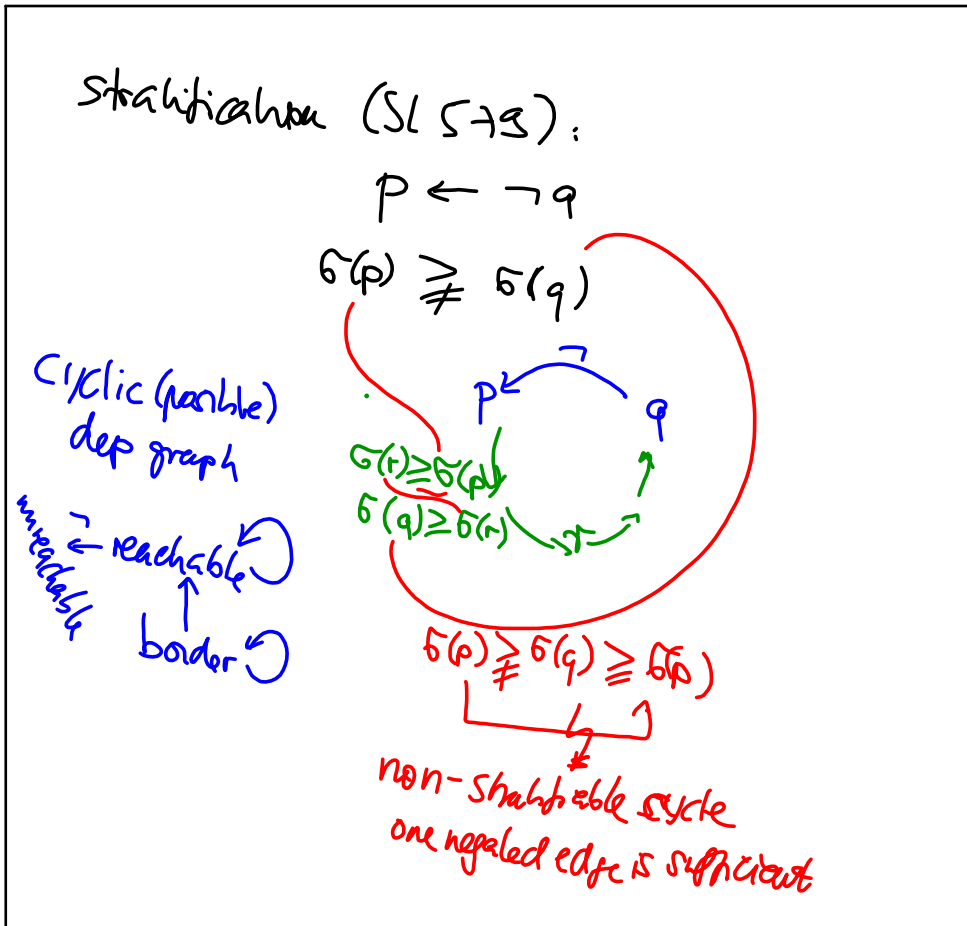 Stratification (Sl 579):
p ← ¬q
σ(p) ≩ σ(q)
Cyclic (possible)
dep graph
¬
p
q
σ(r) ≥ σ(p)
σ(q) ≥ σ(r)
r
¬
unreachable ← reachable
border
σ(p) ≩ σ(q) ≥ σ(p)
non-stratifiable cycle
one negated edge is sufficient